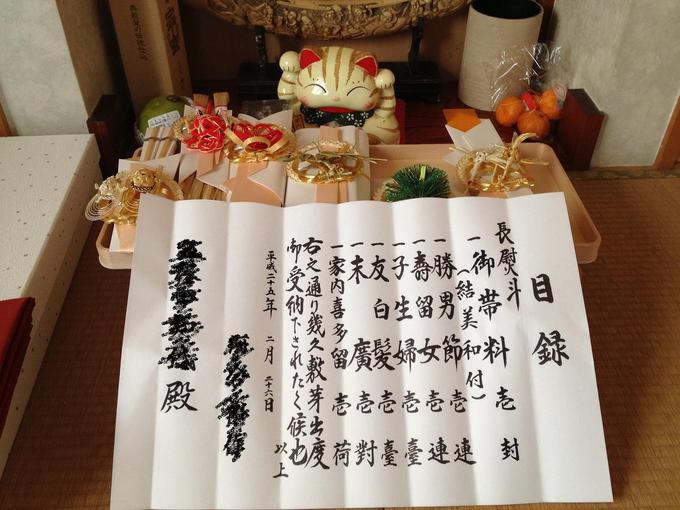 目録
長熨斗
一御帯料壱封
(結美和付)
一勝男節壱連
一壽留女壱連
一子生婦壱臺
一友白髪壱臺
一末廣壱對
一家内喜多留壱荷
右之通り幾久敷芽出度
御受納下されたく候也
以上
平成二十五年 二月 二十六日
殿